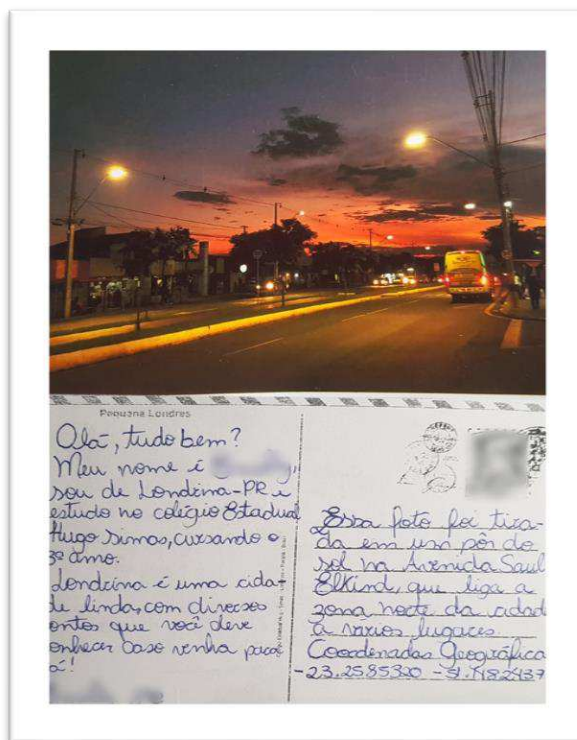 Pequena Londres
Olá, tudo bem?
Meu nome é
sou de Londrina-PR e
estudo no colégio Estadual
Hugo Simas, cursando o
3º ano.
Londrina é uma cida-
de linda, com diversos
ontos que você deve
onhecer caso venha para
á!
Essa foto foi tira-
da em um pôr do
sol na Avenida Saul
Elkind, que liga a
zona norte da cidad
à vários lugares.
Coordenadas Geográfica
-23.2585320 -51.1182437